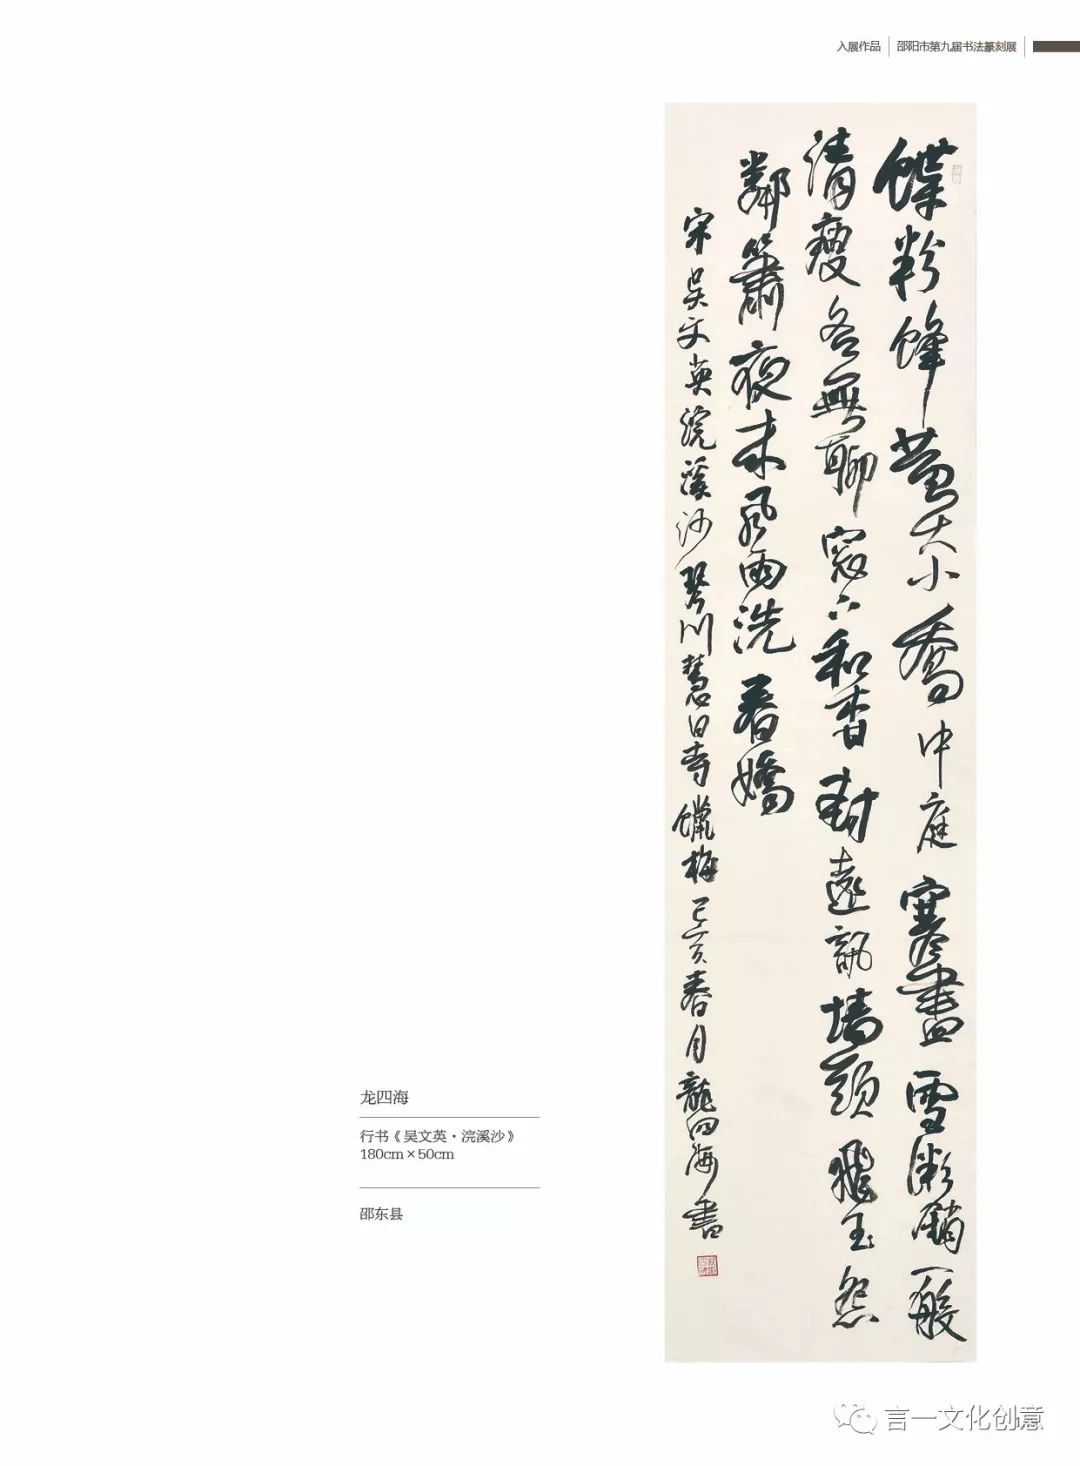 入展作品 邵阳市第九届书法篆刻展
蝶粉蜂黄大小喬中庭寒盡雪微銷一般
清瘦各無聊窓下和香封遠訊墙頭飛玉怨
鄰簫夜来風雨洗春嬌
宋吴文英浣溪沙琴川慧日寺蠟梅己亥春月龍四海書
龙四海
行书《吴文英·浣溪沙》
180cm×50cm
邵东县
言一文化创意